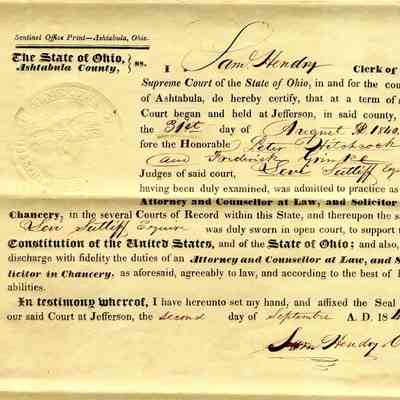 Sentinel Office Print—Ashtabula, Ohio.
The State of Ohio, } ss.
Ashtabula County,
I Sam Hendry Clerk of
Supreme Court of the State of Ohio, in and for the cou
of Ashtabula, do hereby certify, that at a term of
Court began and held at Jefferson, in said county,
the 31st day of August 1840
fore the Honorable Peter Hitchcock
and Frederick Grimke
Judges of said court, Levi Sutliff Esq
having been duly examined, was admitted to practice as
Attorney and Counsellor at Law, and Solicitor
Chancery, in the several Courts of Record within this State, and thereupon the s
Levi Sutliff Esquire was duly sworn in open court, to support t
Constitution of the United States, and of the State of Ohio; and also,
discharge with fidelity the duties of an Attorney and Counsellor at Law, and S
licitor in Chancery, as aforesaid, agreeably to law, and according to the best of
abilities.
In testimony whereof, I have hereunto set my hand, and affixed the Seal
our said Court at Jefferson, the second day of September A. D. 184
Sam Hendry